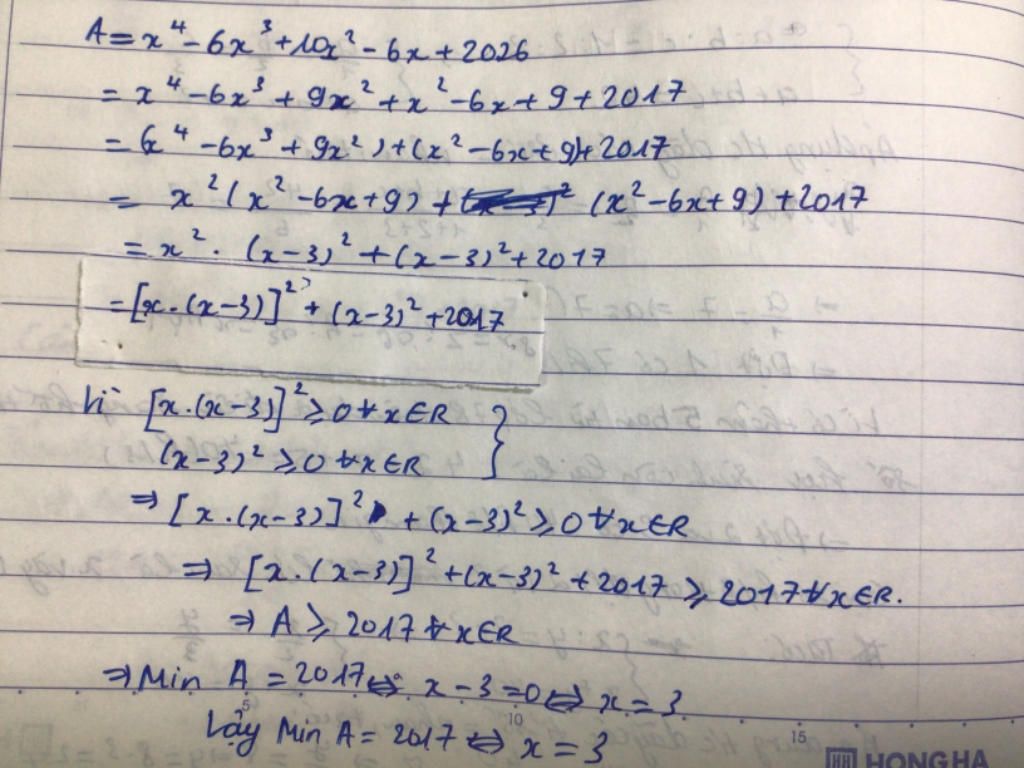 A = x⁴ - 6x³ + 10x² - 6x + 2026
= x⁴ - 6x³ + 9x² + x² - 6x + 9 + 2017
= (x⁴ - 6x³ + 9x²) + (x² - 6x + 9) + 2017
= x² (x² - 6x + 9) + (x² - 6x + 9) + 2017
= x² . (x - 3)² + (x - 3)² + 2017
= [x . (x - 3)]² + (x - 3)² + 2017
Vì [x . (x - 3)]² ≥ 0 ∀ x ∈ R }
(x - 3)² ≥ 0 ∀ x ∈ R
⇒ [x . (x - 3)]² + (x - 3)² ≥ 0 ∀ x ∈ R
⇒ [x . (x - 3)]² + (x - 3)² + 2017 ≥ 2017 ∀ x ∈ R.
⇒ A ≥ 2017 ∀ x ∈ R
⇒ Min A = 2017 ⇔ x - 3 = 0 ⇔ x = 3
Vậy Min A = 2017 ⇔ x = 3
5 10 15
HH HONG HA